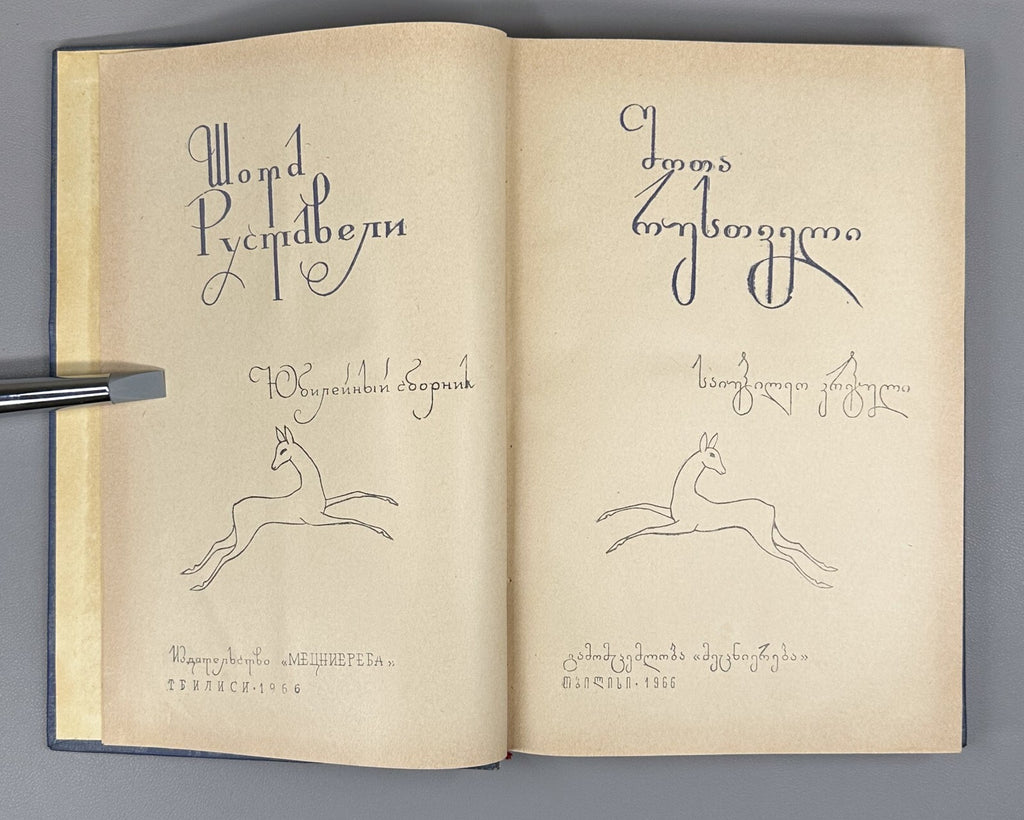 Шота
Руставели
Юбилейный сборник
Издательство «МЕЦНИЕРЕБА»
ТБИЛИСИ • 1966
შოთა
რუსთველი
საიუბილეო კრებული
გამომცემლობა «მეცნიერება»
თბილისი • 1966